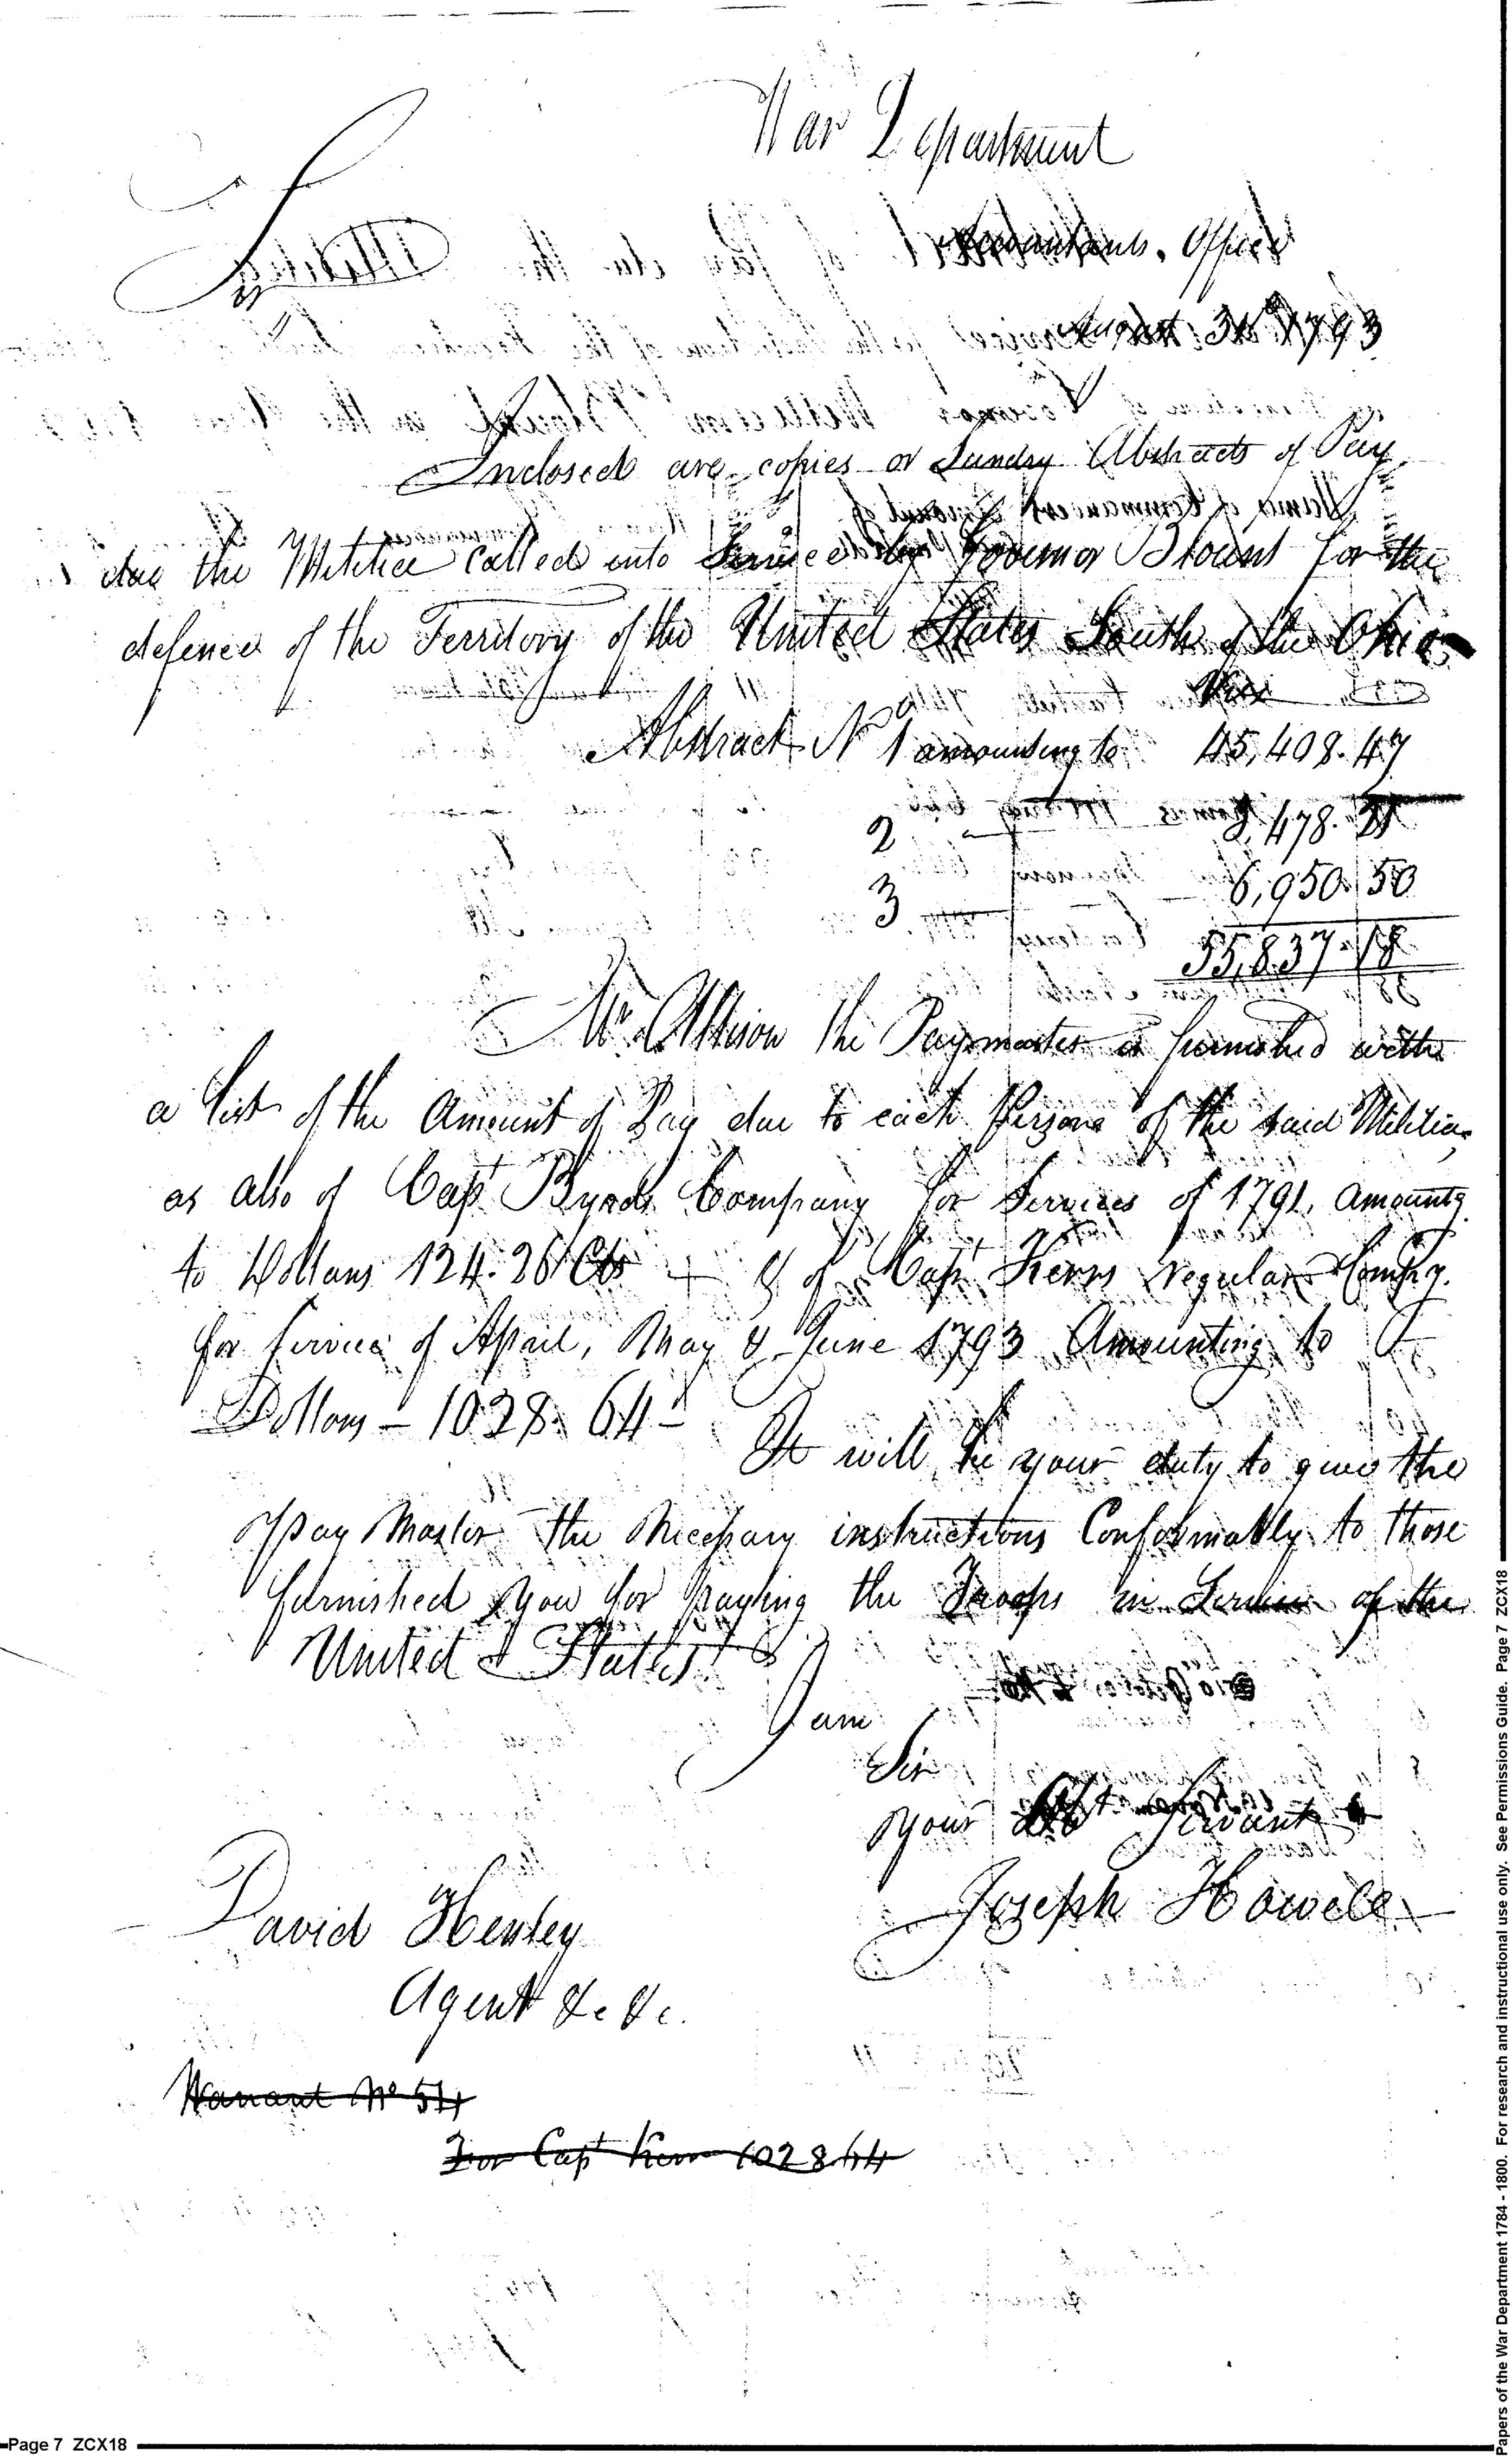 War Department
Accountants. Office
August 1793
Sir
Inclosed are copies of Sundry Abstracts of Pay
due the Militia called into Service by Governor Blount for the
defence of the Territory of the United States South of the Ohio
Viz
Abstract No 1 amounting to 45,408.47
2 — 3,478.21
3 — 6,950.50
55,837.18
Mr. Allison the Paymaster is furnished with
a list of the Amount of Pay due to each Persons of the said Militia,
as also of Capt Byrds Company for Services of 1791, amountg
to Dollars 124.26 Cts & of Capt Kerrs regular Compy.
for service of April, May & June 1793 Amounting to
Dollars – 1028. 64 –
It will be your duty to give the
Pay Master the Necessary instructions Conformably to those
furnished you for paying the Troops in Service of the
United States
I am
Sir
your Obt Servant
Joseph Howell
David Henley
Agent &c &c.
Warrant No 54
For Capt Kerr 1028 64
Page 7 ZCX18
Papers of the War Department 1784 - 1800. For research and instructional use only. See Permissions Guide. Page 7 ZCX18